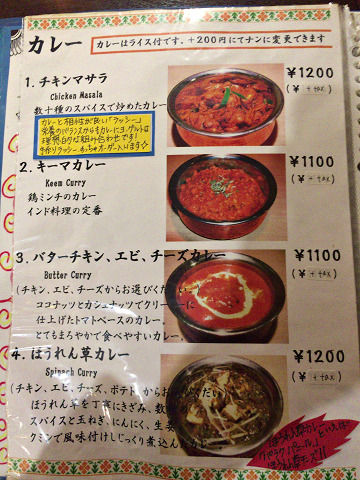 カレー
カレーはライス付です。+200円にてナンに変更できます
1. チキンマサラ
Chicken Masala
数十種のスパイスで炒めたカレー
¥1200
(¥ + tax)
カレーと相性が良い「ラッシー」
栄養のバランスからもカレーにヨーグルトは
理想的な組み合わせです!
手作りラッシー、めっちゃオーダー入ります☆
2. キーマカレー
Keem Curry
鶏ミンチのカレー
インド料理の定番
¥1100
(¥ + tax)
3. バターチキン、エビ、チーズカレー
Butter Curry
(チキン、エビ、チーズからお選びください。)
ココナッツとカシュナッツでクリーミーに
仕上げたトマトベースのカレー。
とてもまろやかで食べやすいカレー。
¥1100
(¥ + tax)
4. ほうれん草カレー
Spinach Curry
(チキン、エビ、チーズ、ポテトからお選びください)
ほうれん草を丁寧にきざみ、数
スパイスと玉ねぎ、にんにく、生姜
クミンで風味付けしじっくり煮込んだカレー。
¥1200
(¥ + tax)
ほうれん草カレーといえば